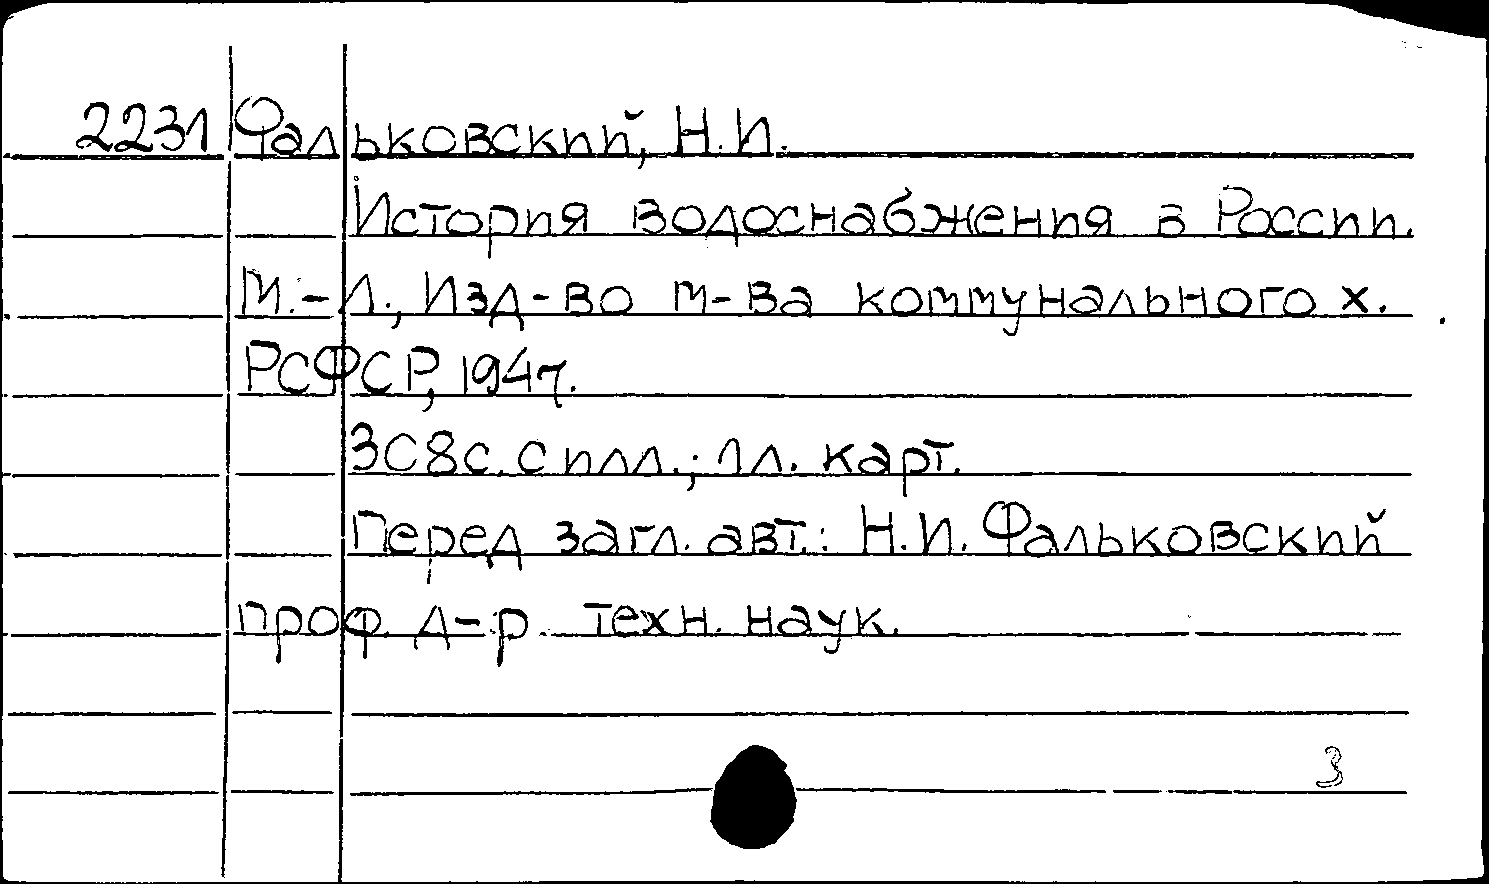 2231 Фальковский, Н.И.
История водоснабжения в России.
М.-Л., Изд-во м-ва коммунального х.
РСФСР, 1947.
308с. с илл.; 1л. карт.
Перед загл. авт.: Н.И. Фальковский
проф. д-р техн. наук.
3